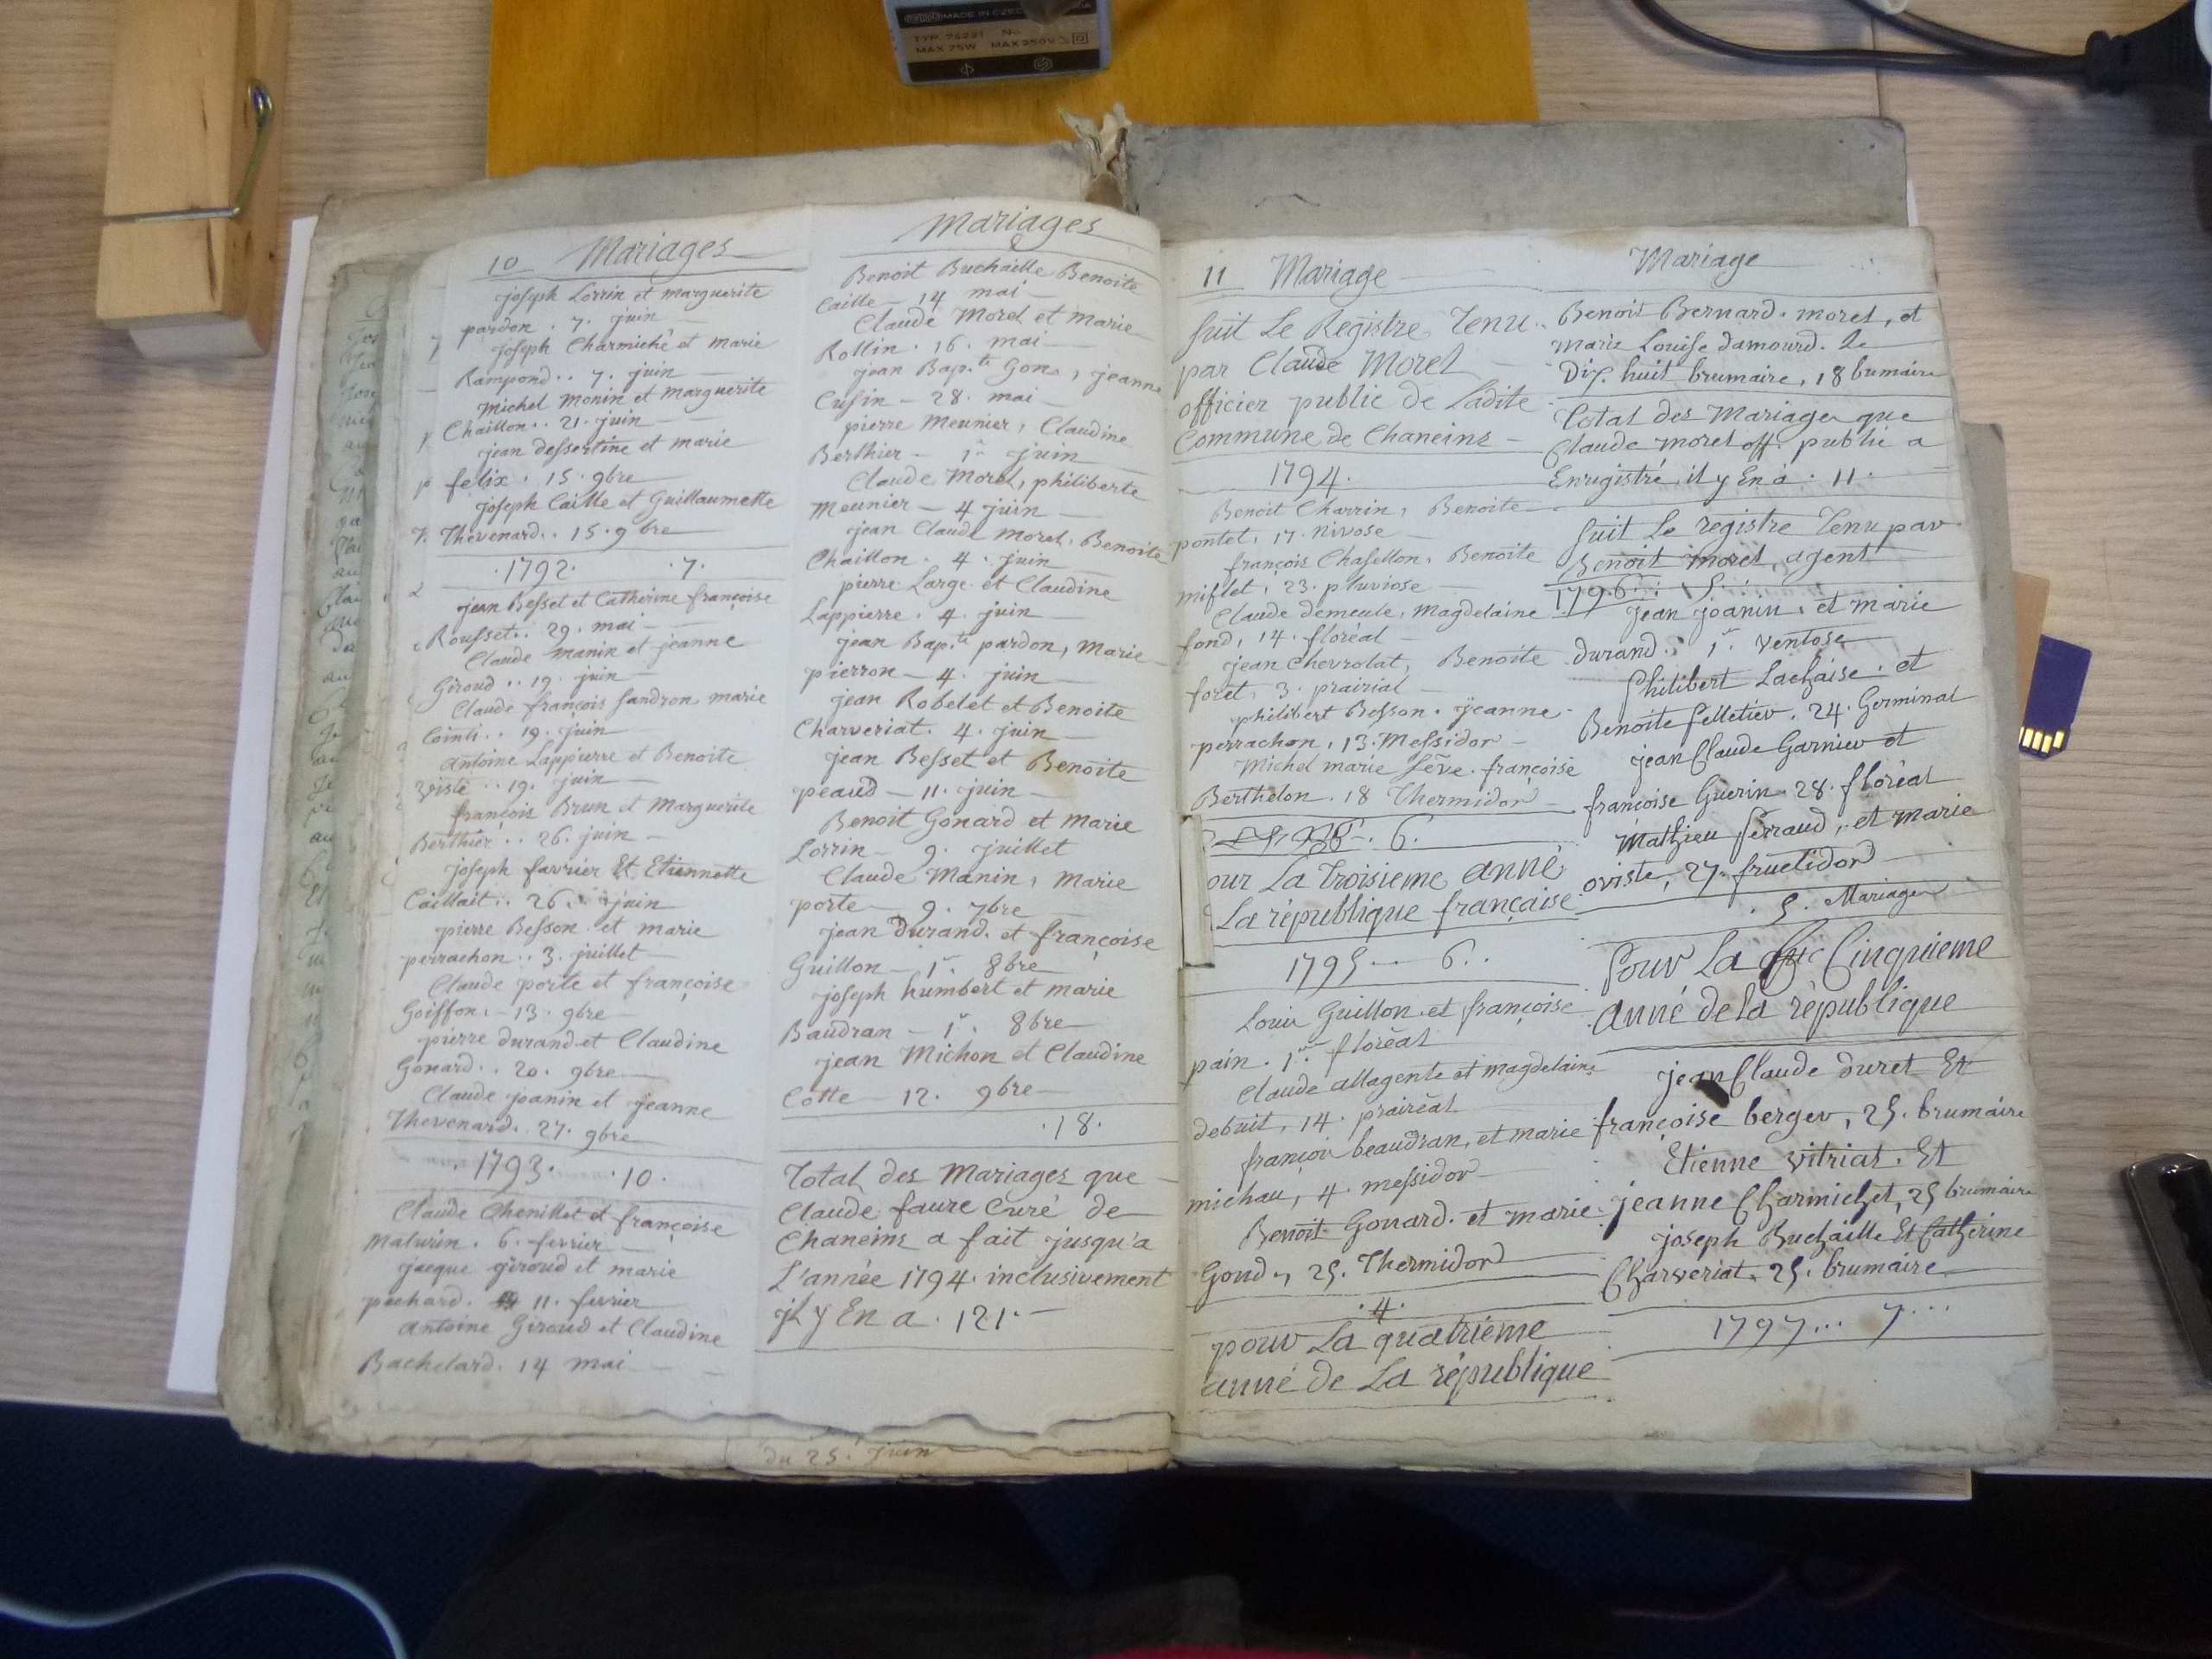 MADE IN CZEC
TYP. 74221 No.
MAX 75W MAX 250V
10 Mariages
joseph Lorrin et marguerite
pardon . 7. juin
joseph Charmiché et marie
Rampond . . 7. juin
Michel Monin et Marguerite
Chaillon . . 21. juin
jean dessertine et marie
felix . 15. 9bre
joseph Caille et Guillaumette
Thevenard . . 15. 9bre
.1792. .7.
jean Besset et Catherine françoise
Rousset . . 29. mai
Claude manin et jeanne
Giroud . . 19. juin
Claude françois Sandron marie
Cointi . . 19. juin
Antoine Lappierre et Benoite
viste . . 19. juin
françois Brun et Marguerite
Berthier . . 26. juin
joseph favrier Et Etiennette
Caillait . . 26. juin
pierre Besson et marie
perrachon . . 3. juillet
Claude porte et françoise
Goiffon . - 13. 9bre
pierre durand et Claudine
Gonard . . 20. 9bre
Claude joanin et jeanne
Thevenard . . 27. 9bre
.1793. .10.
Claude Chenillet et françoise
Maturin . 6. fevrier
jacque giroud et marie
pechard . 11. fevrier
Antoine Giroud et Claudine
Bachelard . 14 mai
Mariages
Benoit Buchaille Benoite
Caille - 14 mai
Claude Morel et Marie
Rollin . 16. mai
jean Bap.te Gon , jeanne
Cusin - 28. mai
pierre Meunier, Claudine
Berthier - 1r juin
Claude Morel, philiberte
Meunier - 4 juin
jean Claude Morel. Benoite
Chaillon . 4. juin
pierre Large et Claudine
Lappierre . 4. juin
jean Bap.te pardon, Marie
pierron - 4. juin
jean Robelet et Benoite
Charveriat . 4. juin
jean Besset et Benoite
peaud - 11. juin
Benoit Gonard et Marie
Lorrin - 9. juillet
Claude Manin, Marie
porte - 9. 7bre
jean Durand. et françoise
Guillon - 1r. 8bre
joseph humbert et marie
Baudran - 1r. 8bre
jean Michon et Claudine
Cotte - 12. 9bre
.18.
Total des Mariages que
Claude faure Curé de
Chaneins a fait jusqu'a
L'année 1794. inclusivement
jl y En a . 121.
du 25. juin
11 Mariage
Suit Le Registre Tenu
par Claude Morel
officier public de Ladite
Commune de Chaneins
1794.
Benoit Charrin, Benoite
pontet, 17. Nivose
françois Chasellon, Benoite
miflet, 23. pluviose
Claude demeule, Magdelaine
fond, 14. floréal
jean Chevrolat, Benoite
foret, 3. prairial
philibert Besson. jeanne
perrachon, 13. Messidor
Michel marie Sève. françoise
Berthelon . 18 Thermidor
6.
our La Troisieme anné
La république française
1795 - - - 6. .
Louis Guillon et françoise
pain . 1er. floréal
Claude allagente et magdelaine
debuit, 14. prairéal
françois beaudran, et marie
michau, 4. messidor
Benoit Gonard. et marie
Goud., 25. Thermidor
.4.
pour La quatrieme
anné de La république
Mariage
Benoit Bernard. morel, et
Marie Louise damourd. Le
Dix. huit brumaire, 18 bumaire
Total des Mariages que
Claude morel off. public a
Enrigistré, il y En a . 11.
Suit Le registre Tenu par
Benoit morel, agent
1796. . . 5. . .
jean joanin, et marie
durand. 1r. Ventose
Philibert Lachaise . et
Benoite Pelletier . 24. Germinal
jean Claude Garnier et
françoise Guerin. 28. floréal
Mathieu Ferraud, et marie
oviste, 27. fructidor
. 5. Mariages
Pour La Cinquieme
anné de la république
jean Claude duret Et
françoise berger, 25. brumaire
Etienne vitriat. Et
jeanne Charmichet, 25 brumaire
joseph Buchaille Et Catherine
Charveriat. 25. brumaire
1797. . . 7. . .